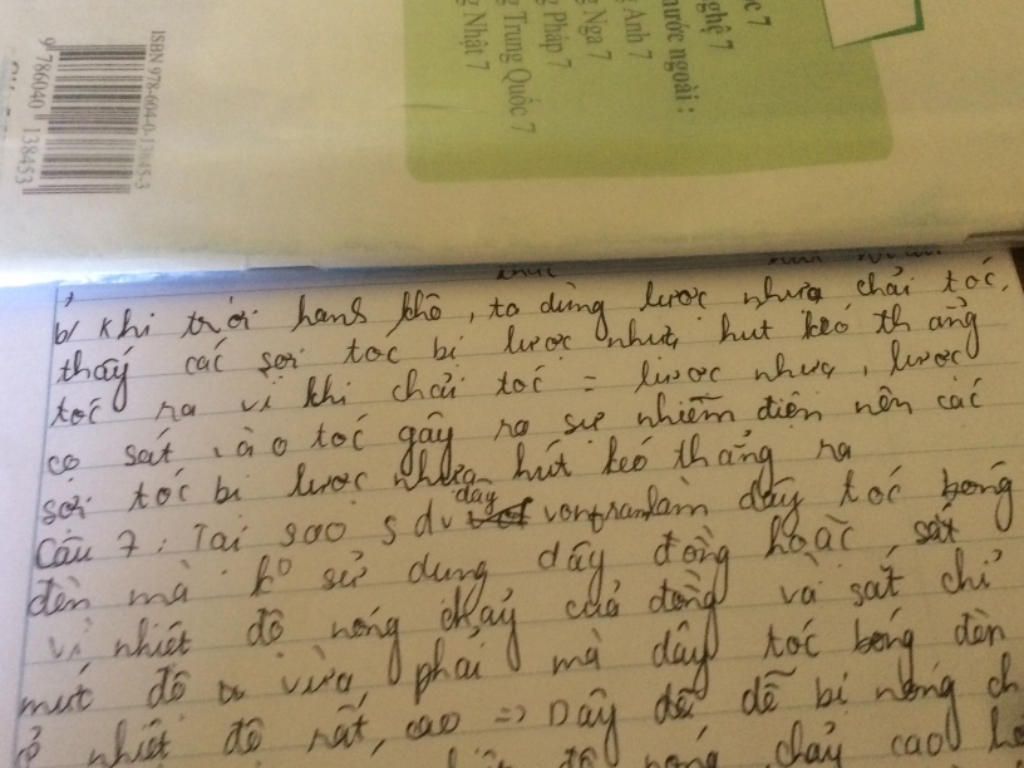 ISBN 978-604-0-13845-3
9 786040 138453
c 7
nghệ 7
nước ngoài :
g Anh 7
g Nga 7
g Pháp 7
g Trung Quốc 7
g Nhật 7
b/ Khi trời hanh khô, ta dùng lược nhựa chải tóc,
thấy các sợi tóc bị lược nhựa hút kéo thẳng
tóc ra vì khi chải tóc = lược nhựa, lược
cọ sát vào tóc gây ra sự nhiễm điện nên các
sợi tóc bị lược nhựa hút kéo thẳng ra
Câu 7: Tại sao sd dây vonfram làm dây tóc bóng
đèn mà ko sử dụng dây đồng hoặc sắt
vì nhiệt độ nóng chảy của đồng và sắt chỉ
mức độ vừa phải mà dây tóc bóng đèn
ở nhiệt độ rất cao => Dây dễ bị nóng ch
độ nóng chảy cao